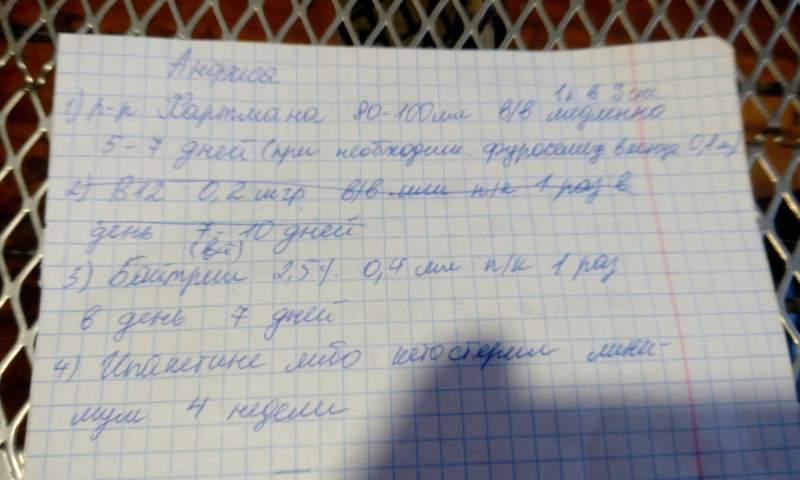 Анфиса
1) р-р Хартмана 80-100 мл в/в медленно 1 р в день
5-7 дней (при необходим. фуросемид в конце 0,1 мл)
2) В12 0,2 мгр в/в или п/к 1 раз в
день 7-10 дней
3) Байтрил 2,5% 0,4 мл п/к 1 раз
в день 7 дней
4) Ипакетине либо кетостерил мини-
мум 4 недели